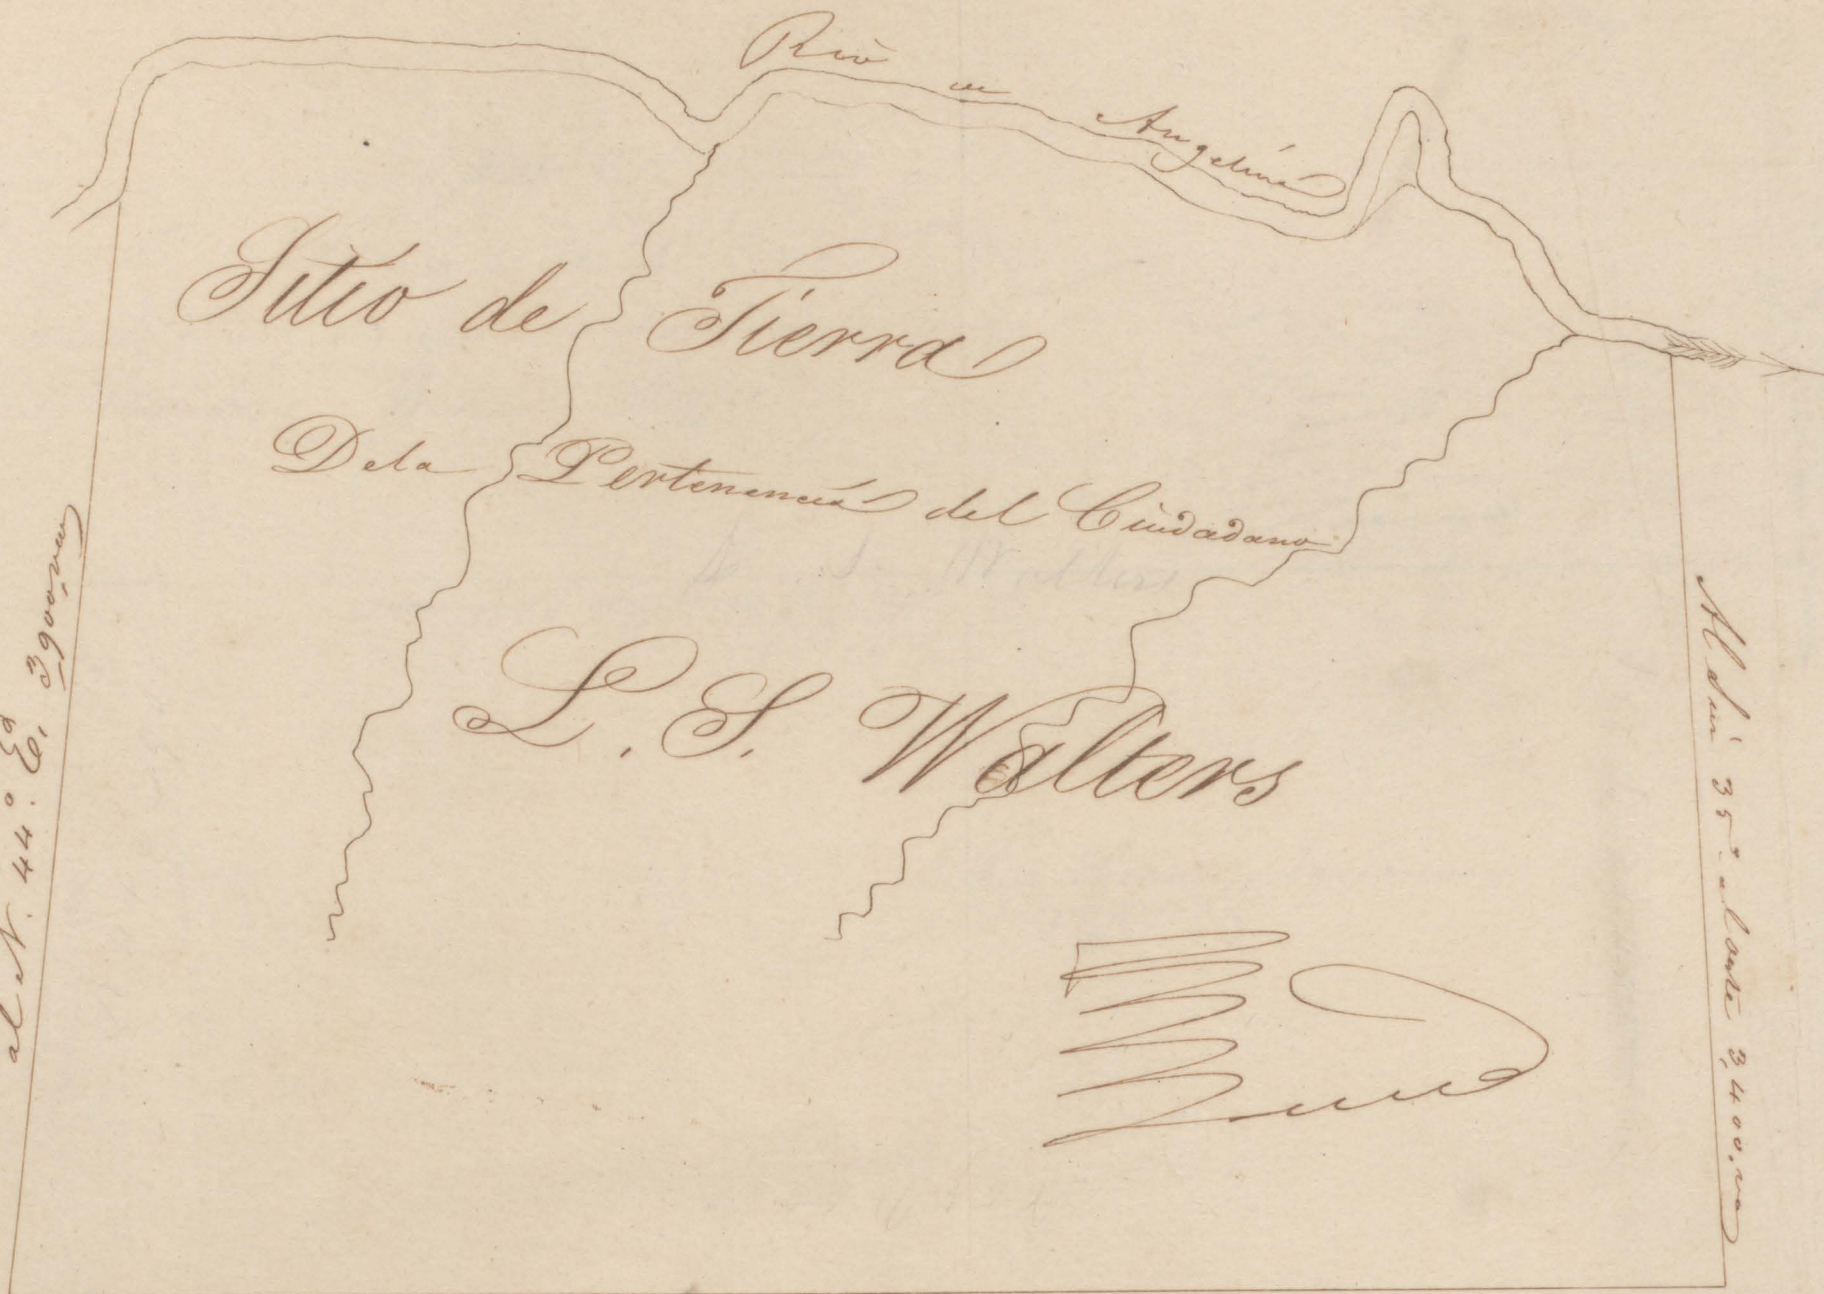 Rio de Angelina
Sitio de Tierra
De la Pertenencia del Ciudadano
L. S. Walters
al N. 44.° E. 3900 vars
Al Sur 35° al oeste 3,400. vas